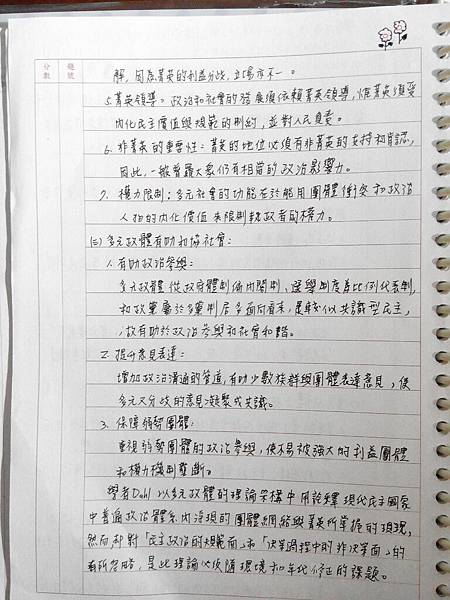 分數 題號
解，因為菁英的利益分歧，立場亦不一。
5.菁英領導。政治和社會的發展須依賴菁英領導，惟菁英須受
內化民主價值與規範的制約，並對人民負責。
6. 非菁英的重要性：菁英的地位必須有非菁英的支持和肯認，
因此，一般普羅大眾仍有相當的政治影響力。
7. 權力限制：多元社會的功能在於能用團體衝突和政治
人物的內化價值來限制執政者的權力。
(三) 多元政體有助和協社會：
1.有助政治參與：
多元政體從政府體制偏內閣制、選舉制度為比例代表制，
和政黨屬於多黨制層多面向看來，是較似共識型民主，
故有助於政治參與和社會和諧。
2. 提升意見表達：
增加政治溝通的管道，有助少數族群與團體表達意見，使
多元又分歧的意見凝聚成共識。
3. 保障弱勢團體：
重視弱勢團體的政治參與，使不易被強大的利益團體
和權力機制壟斷。
學者Dahl以多元政體的理論架構中用詮釋現代民主國家
中普遍政治體系內浮現的團體網絡與菁英所掌握的現現，
然而卻對「民主政治的規範面」和「決策過程中的非決策面」的
有所忽略，是此理論必須隨環境和年代修正的課題。